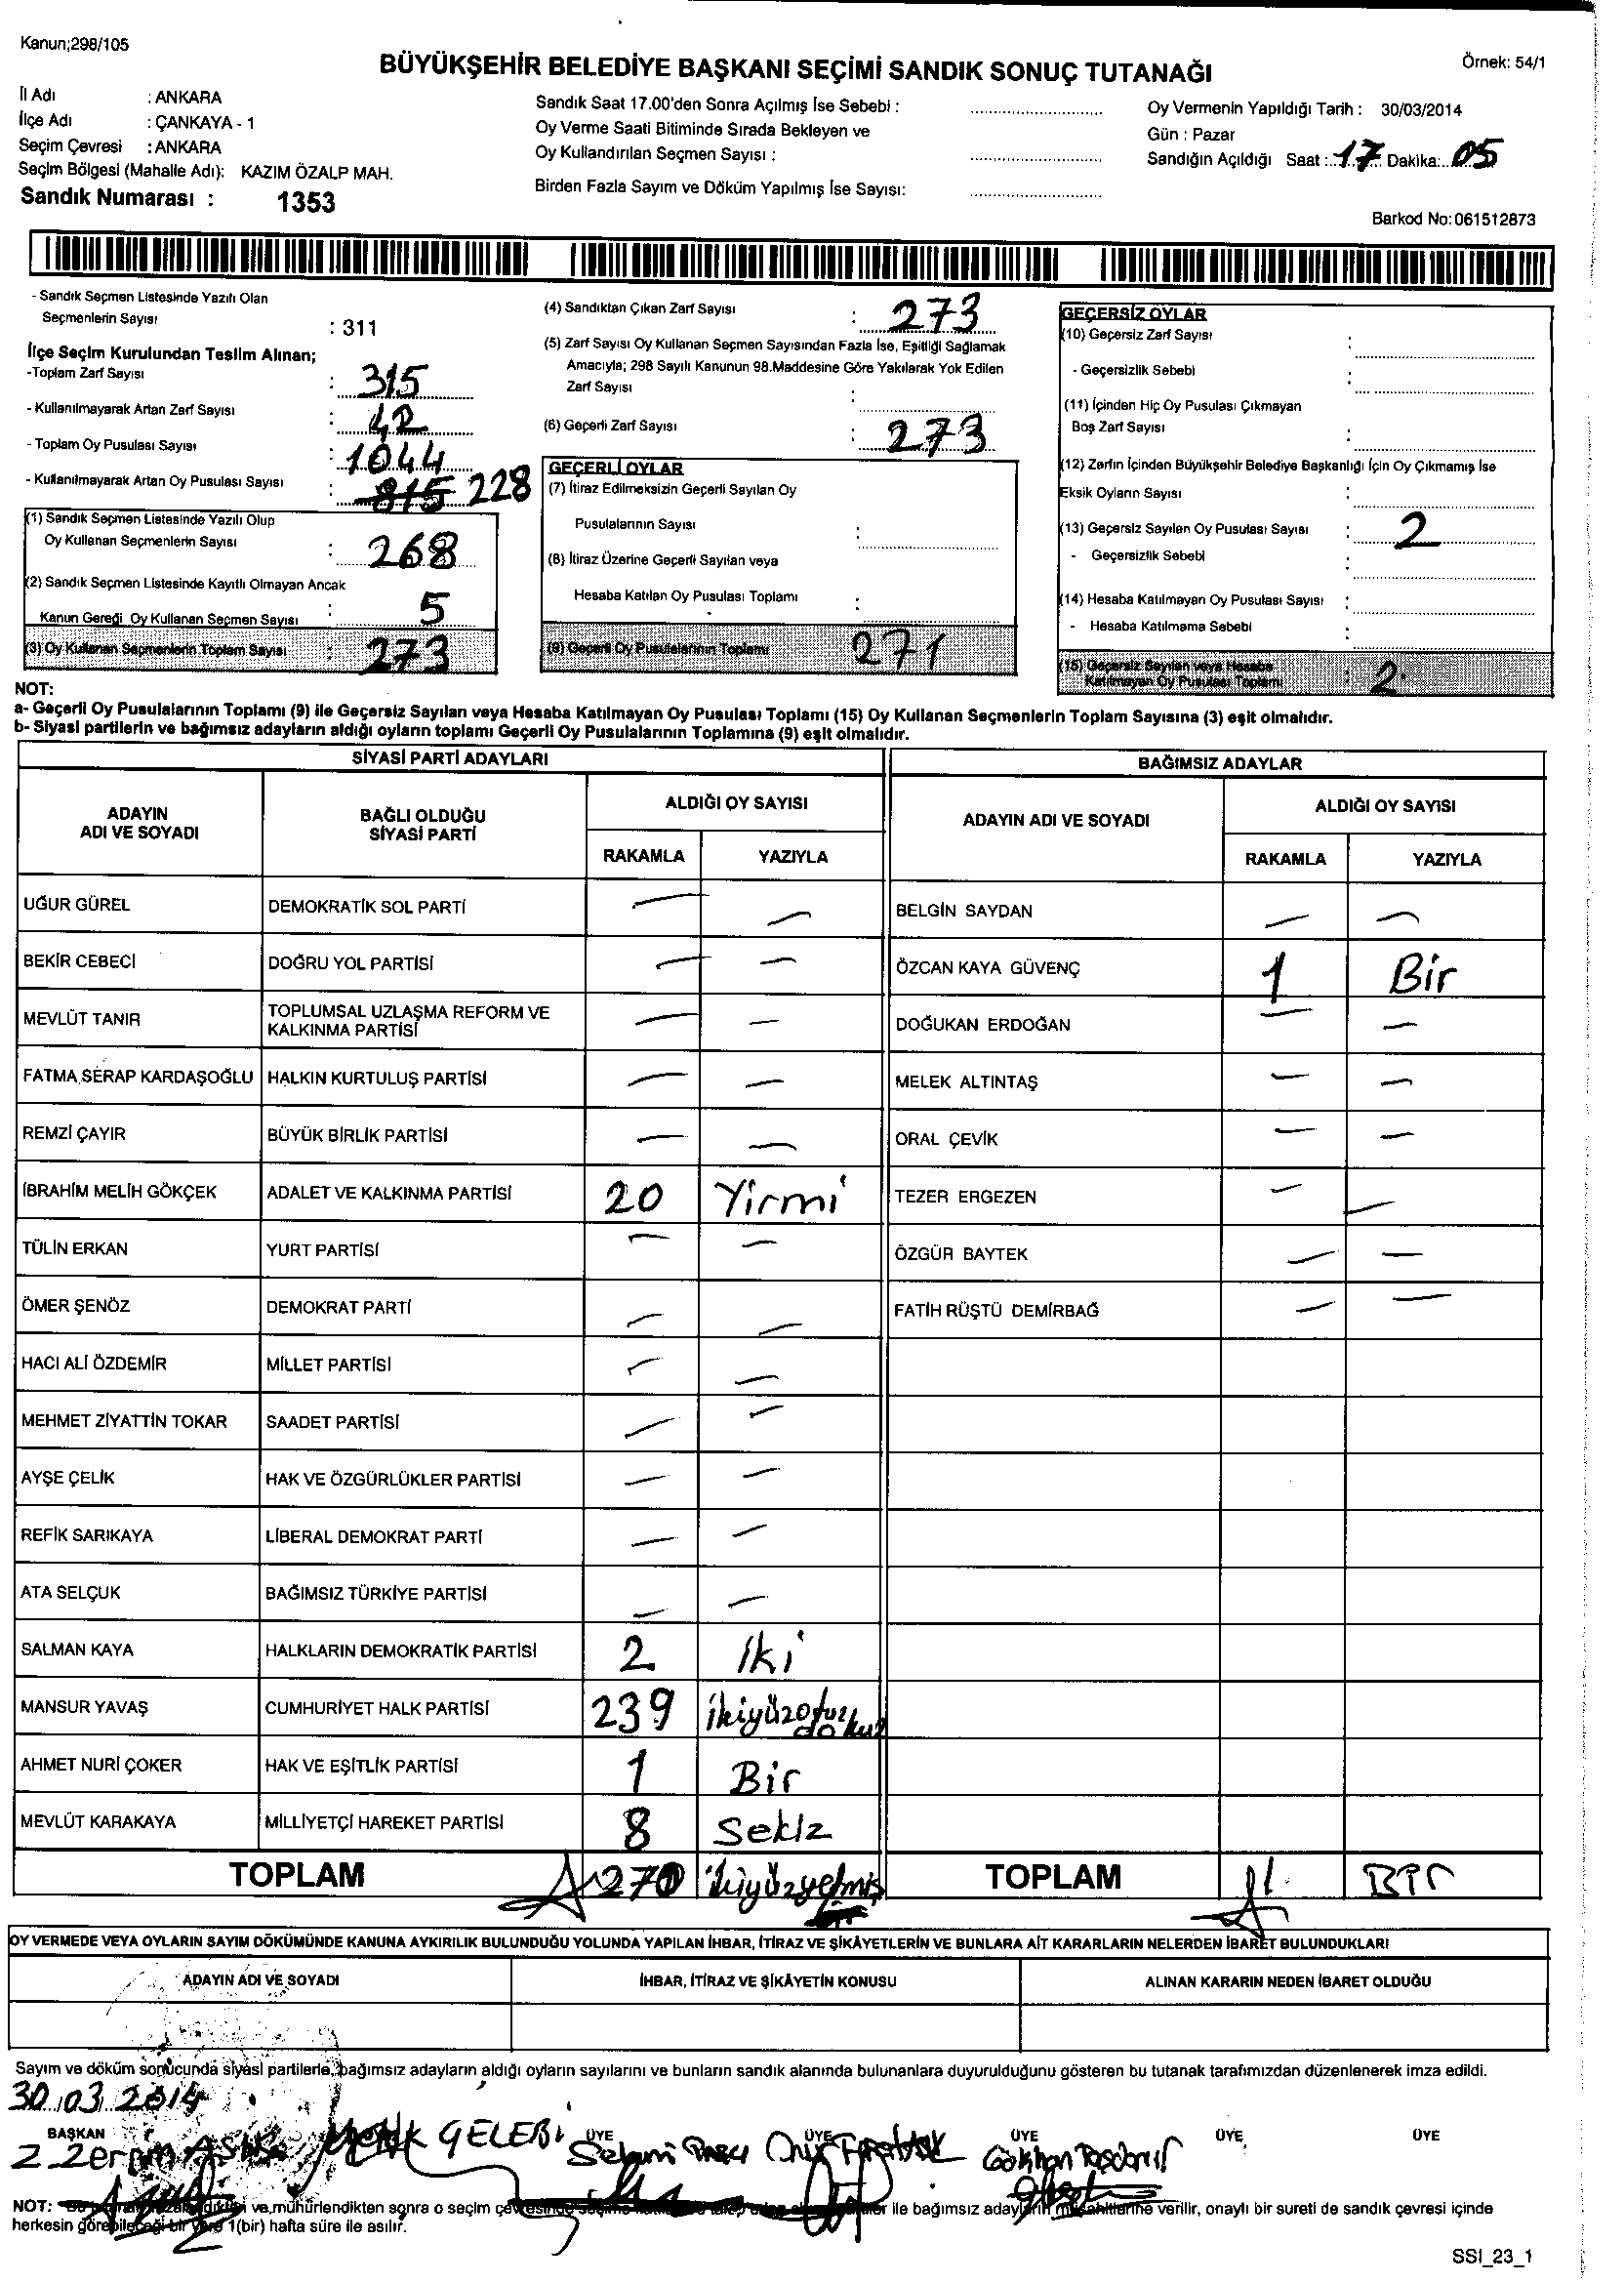 Kanun;298/105
BÜYÜKŞEHİR BELEDİYE BAŞKANI SEÇİMİ SANDIK SONUÇ TUTANAĞI
Örnek: 54/1
İl Adı : ANKARA
İlçe Adı : ÇANKAYA - 1
Seçim Çevresi : ANKARA
Seçim Bölgesi (Mahalle Adı): KAZIM ÖZALP MAH.
Sandık Numarası : 1353
Sandık Saat 17.00'den Sonra Açılmış İse Sebebi :
Oy Verme Saati Bitiminde Sırada Bekleyen ve
Oy Kullandırılan Seçmen Sayısı :
Birden Fazla Sayım ve Döküm Yapılmış İse Sayısı:
Oy Vermenin Yapıldığı Tarih : 30/03/2014
Gün : Pazar
Sandığın Açıldığı Saat : 17 Dakika: 05
Barkod No: 061512873
- Sandık Seçmen Listesinde Yazılı Olan
Seçmenlerin Sayısı : 311
İlçe Seçim Kurulundan Teslim Alınan;
-Toplam Zarf Sayısı : 315
- Kullanılmayarak Artan Zarf Sayısı : 42
- Toplam Oy Pusulası Sayısı : 1044
- Kullanılmayarak Artan Oy Pusulası Sayısı : 815 228
(1) Sandık Seçmen Listesinde Yazılı Olup
Oy Kullanan Seçmenlerin Sayısı : 268
(2) Sandık Seçmen Listesinde Kayıtlı Olmayan Ancak
Kanun Gereği Oy Kullanan Seçmen Sayısı : 5
(3) Oy Kullanan Seçmenlerin Toplam Sayısı : 273
(4) Sandıktan Çıkan Zarf Sayısı : 273
(5) Zarf Sayısı Oy Kullanan Seçmen Sayısından Fazla İse, Eşitliği Sağlamak
Amacıyla; 298 Sayılı Kanunun 98.Maddesine Göre Yakılarak Yok Edilen
Zarf Sayısı :
(6) Geçerli Zarf Sayısı : 273
GEÇERLİ OYLAR
(7) İtiraz Edilmeksizin Geçerli Sayılan Oy
Pusulalarının Sayısı :
(8) İtiraz Üzerine Geçerli Sayılan veya
Hesaba Katılan Oy Pusulası Toplamı :
(9) Geçerli Oy Pusulalarının Toplamı 271
GEÇERSİZ OYLAR
(10) Geçersiz Zarf Sayısı :
- Geçersizlik Sebebi :
(11) İçinden Hiç Oy Pusulası Çıkmayan
Boş Zarf Sayısı :
(12) Zarfın İçinden Büyükşehir Belediye Başkanlığı İçin Oy Çıkmamış İse
Eksik Oyların Sayısı :
(13) Geçersiz Sayılan Oy Pusulası Sayısı : 2
- Geçersizlik Sebebi :
(14) Hesaba Katılmayan Oy Pusulası Sayısı :
- Hesaba Katılmama Sebebi :
(15) Geçersiz Sayılan veya Hesaba
Katılmayan Oy Pusulası Toplamı : 2
NOT:
a- Geçerli Oy Pusulalarının Toplamı (9) ile Geçersiz Sayılan veya Hesaba Katılmayan Oy Pusulası Toplamı (15) Oy Kullanan Seçmenlerin Toplam Sayısına (3) eşit olmalıdır.
b- Siyasi partilerin ve bağımsız adayların aldığı oyların toplamı Geçerli Oy Pusulalarının Toplamına (9) eşit olmalıdır.
SİYASİ PARTİ ADAYLARI
ADAYIN ADI VE SOYADI BAĞLI OLDUĞU SİYASİ PARTİ ALDIĞI OY SAYISI
RAKAMLA YAZIYLA
UĞUR GÜREL DEMOKRATİK SOL PARTİ — —
BEKİR CEBECİ DOĞRU YOL PARTİSİ — —
MEVLÜT TANIR TOPLUMSAL UZLAŞMA REFORM VE KALKINMA PARTİSİ — —
FATMA SERAP KARDAŞOĞLU HALKIN KURTULUŞ PARTİSİ — —
REMZİ ÇAYIR BÜYÜK BİRLİK PARTİSİ — —
İBRAHİM MELİH GÖKÇEK ADALET VE KALKINMA PARTİSİ 20 Yirmi
TÜLİN ERKAN YURT PARTİSİ — —
ÖMER ŞENÖZ DEMOKRAT PARTİ — —
HACI ALİ ÖZDEMİR MİLLET PARTİSİ — —
MEHMET ZİYATTİN TOKAR SAADET PARTİSİ — —
AYŞE ÇELİK HAK VE ÖZGÜRLÜKLER PARTİSİ — —
REFİK SARIKAYA LİBERAL DEMOKRAT PARTİ — —
ATA SELÇUK BAĞIMSIZ TÜRKİYE PARTİSİ — —
SALMAN KAYA HALKLARIN DEMOKRATİK PARTİSİ 2 İki
MANSUR YAVAŞ CUMHURİYET HALK PARTİSİ 239 ikiyüzotuz dokuz
AHMET NURİ ÇOKER HAK VE EŞİTLİK PARTİSİ 1 Bir
MEVLÜT KARAKAYA MİLLİYETÇİ HAREKET PARTİSİ 8 Sekiz
TOPLAM 270 ikiyüzyetmiş
BAĞIMSIZ ADAYLAR
ADAYIN ADI VE SOYADI ALDIĞI OY SAYISI
RAKAMLA YAZIYLA
BELGİN SAYDAN — —
ÖZCAN KAYA GÜVENÇ 1 Bir
DOĞUKAN ERDOĞAN — —
MELEK ALTINTAŞ — —
ORAL ÇEVİK — —
TEZER ERGEZEN — —
ÖZGÜR BAYTEK — —
FATİH RÜŞTÜ DEMİRBAĞ — —
TOPLAM 1 BİR
OY VERMEDE VEYA OYLARIN SAYIM DÖKÜMÜNDE KANUNA AYKIRILIK BULUNDUĞU YOLUNDA YAPILAN İHBAR, İTİRAZ VE ŞİKÂYETLERİN VE BUNLARA AİT KARARLARIN NELERDEN İBARET BULUNDUKLARI
ADAYIN ADI VE SOYADI İHBAR, İTİRAZ VE ŞİKÂYETİN KONUSU ALINAN KARARIN NEDEN İBARET OLDUĞU
Sayım ve döküm sonucunda siyasi partilerle, bağımsız adayların aldığı oyların sayılarını ve bunların sandık alanında bulunanlara duyurulduğunu gösteren bu tutanak tarafımızdan düzenlenerek imza edildi.
30.03.2014
BAŞKAN ÜYE ÜYE ÜYE ÜYE ÜYE
ÇELEBİ Selami Onur Gökhan
NOT: ve mühürlendikten sonra o seçim ile bağımsız adayların müşahitlerine verilir, onaylı bir sureti de sandık çevresi içinde
herkesin görebileceği bir yere 1(bir) hafta süre ile asılır.
SSI_23_1